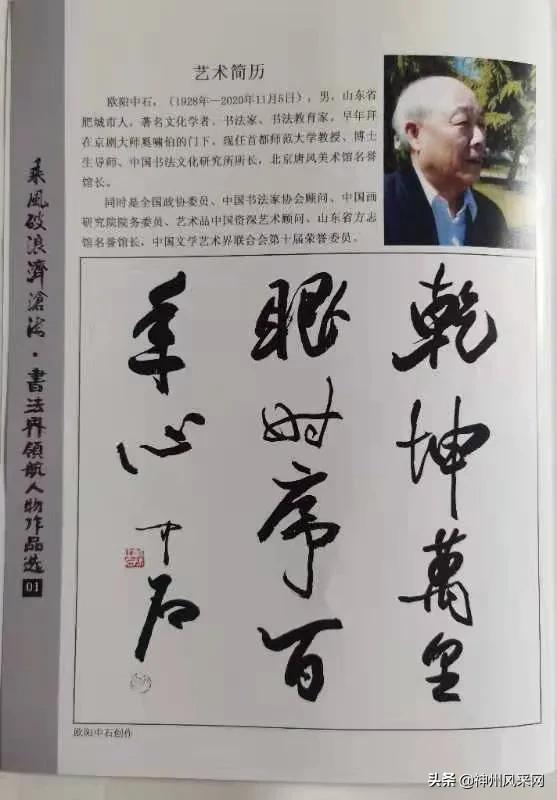 艺术简历
欧阳中石,(1928年—2020年11月5日),男,山东省
肥城市人,著名文化学者、书法家、书法教育家,早年拜
在京剧大师奚啸伯的门下。现任首都师范大学教授、博士
生导师、中国书法文化研究所所长,北京唐风美术馆名誉
馆长。
同时是全国政协委员、中国书法家协会顾问、中国画
研究院院务委员、艺术品中国资深艺术顾问、山东省方志
馆名誉馆长,中国文学艺术界联合会第十届荣誉委员。
乘风破浪濟滄海·書法界領航人物作品选
01
乾坤萬里
眼时序百
年心
中石
欧阳中石创作
头条 @神州风采网